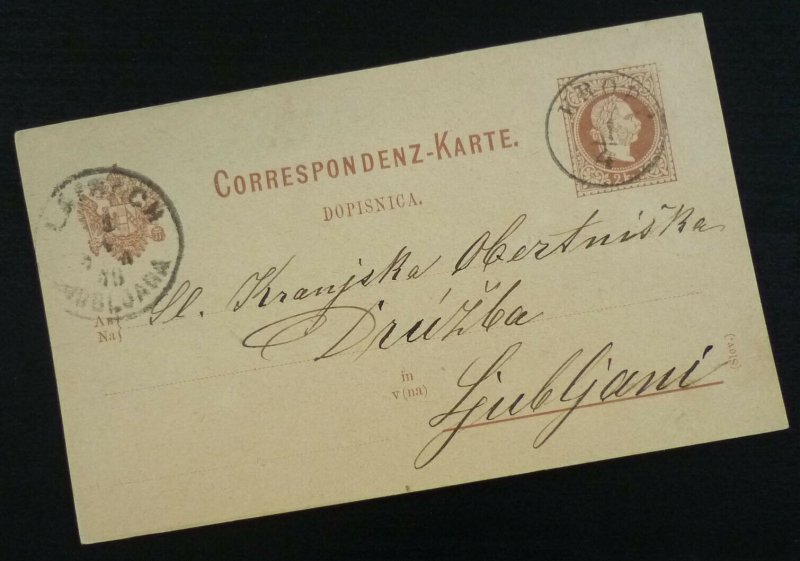 KROP
1
4
CORRESPONDENZ-KARTE.
DOPISNICA.
LAIBACH
LJUBLJANA
An
Na
Sl. Kranjska Obertniška
Drúžba
in
v (na)
Ljubljani
(Slov.)